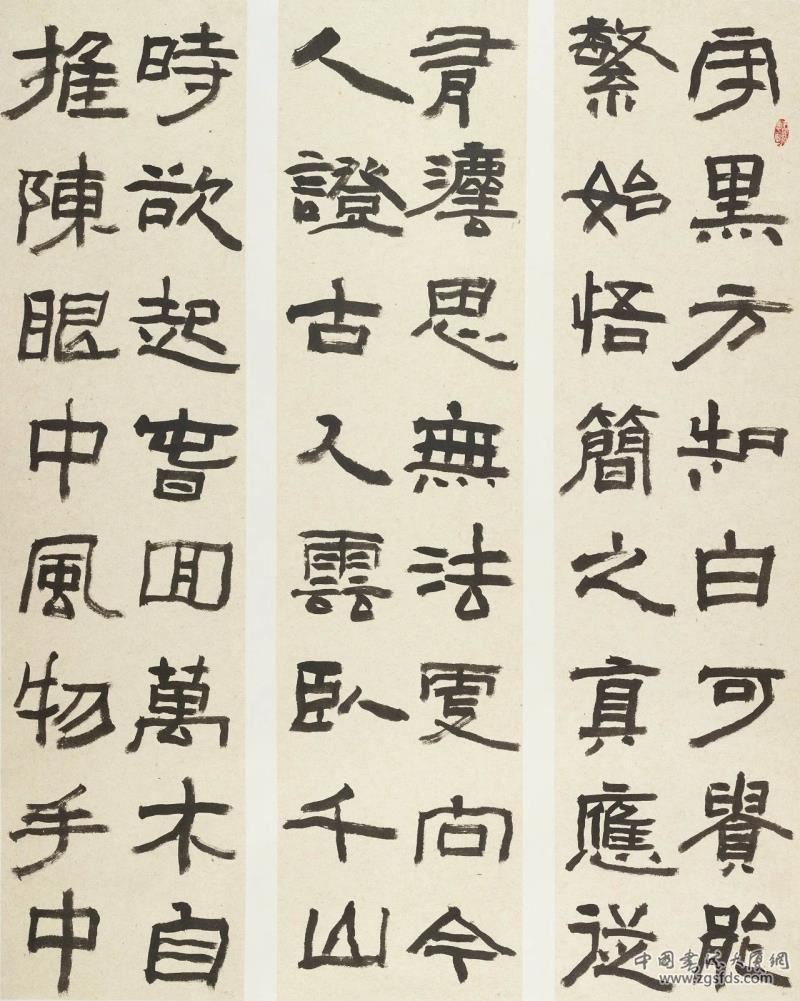 守黑方知白可貴能
繁始悟簡之真應從
有灋思無法更向今
人證古人雲臥千山
時欲起春回萬木自
推陳眼中風物手中
www.zgsfds.com